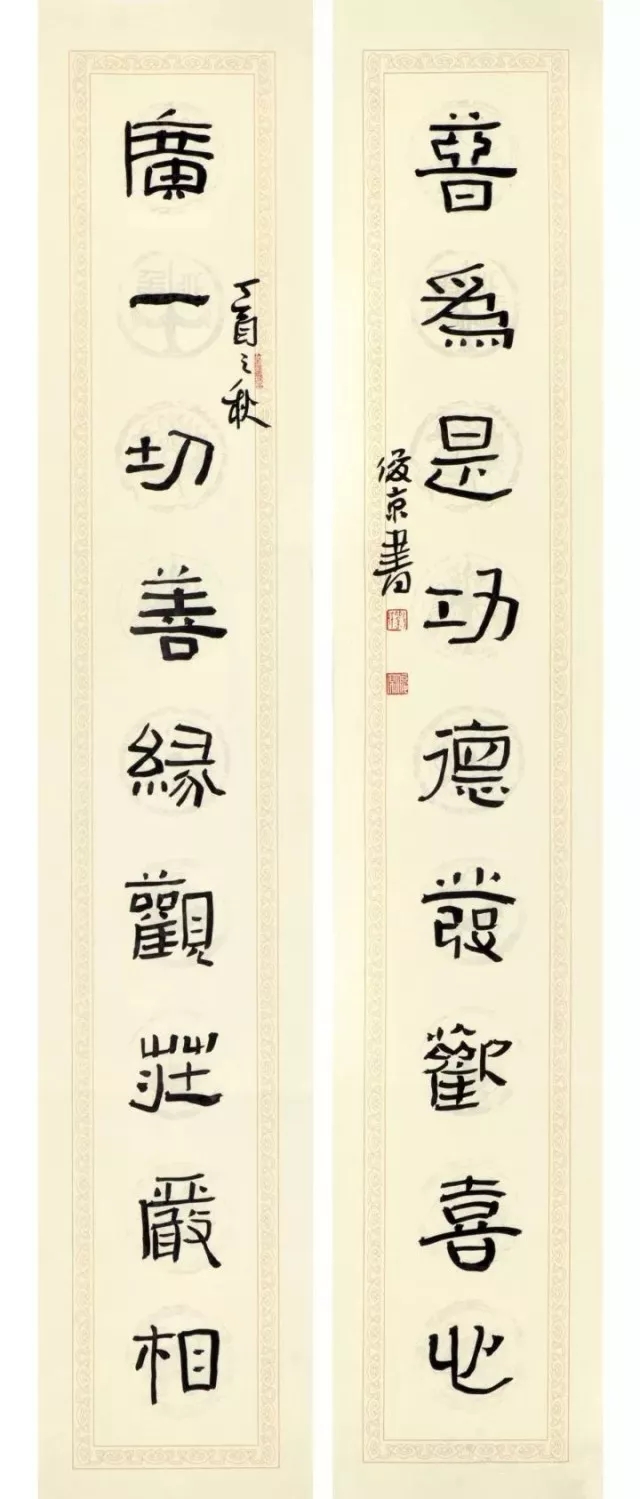 普爲是功德發歡喜心
俊京書
丁酉之秋
廣一切善緣觀莊嚴相